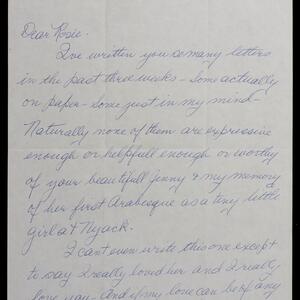 Dear Rosie.
I've written you so many letters
in the past three weeks - some actually
on paper - some just in my mind -
Naturally none of them are expressive
enough or helpfull enough or worthy
of your beautifull Jenny & my memory
of her first Arabesque as a tiny little
girl at Nyack.
I cant even write this one except
to say I really loved her and I really
love you - And if my love can be of any